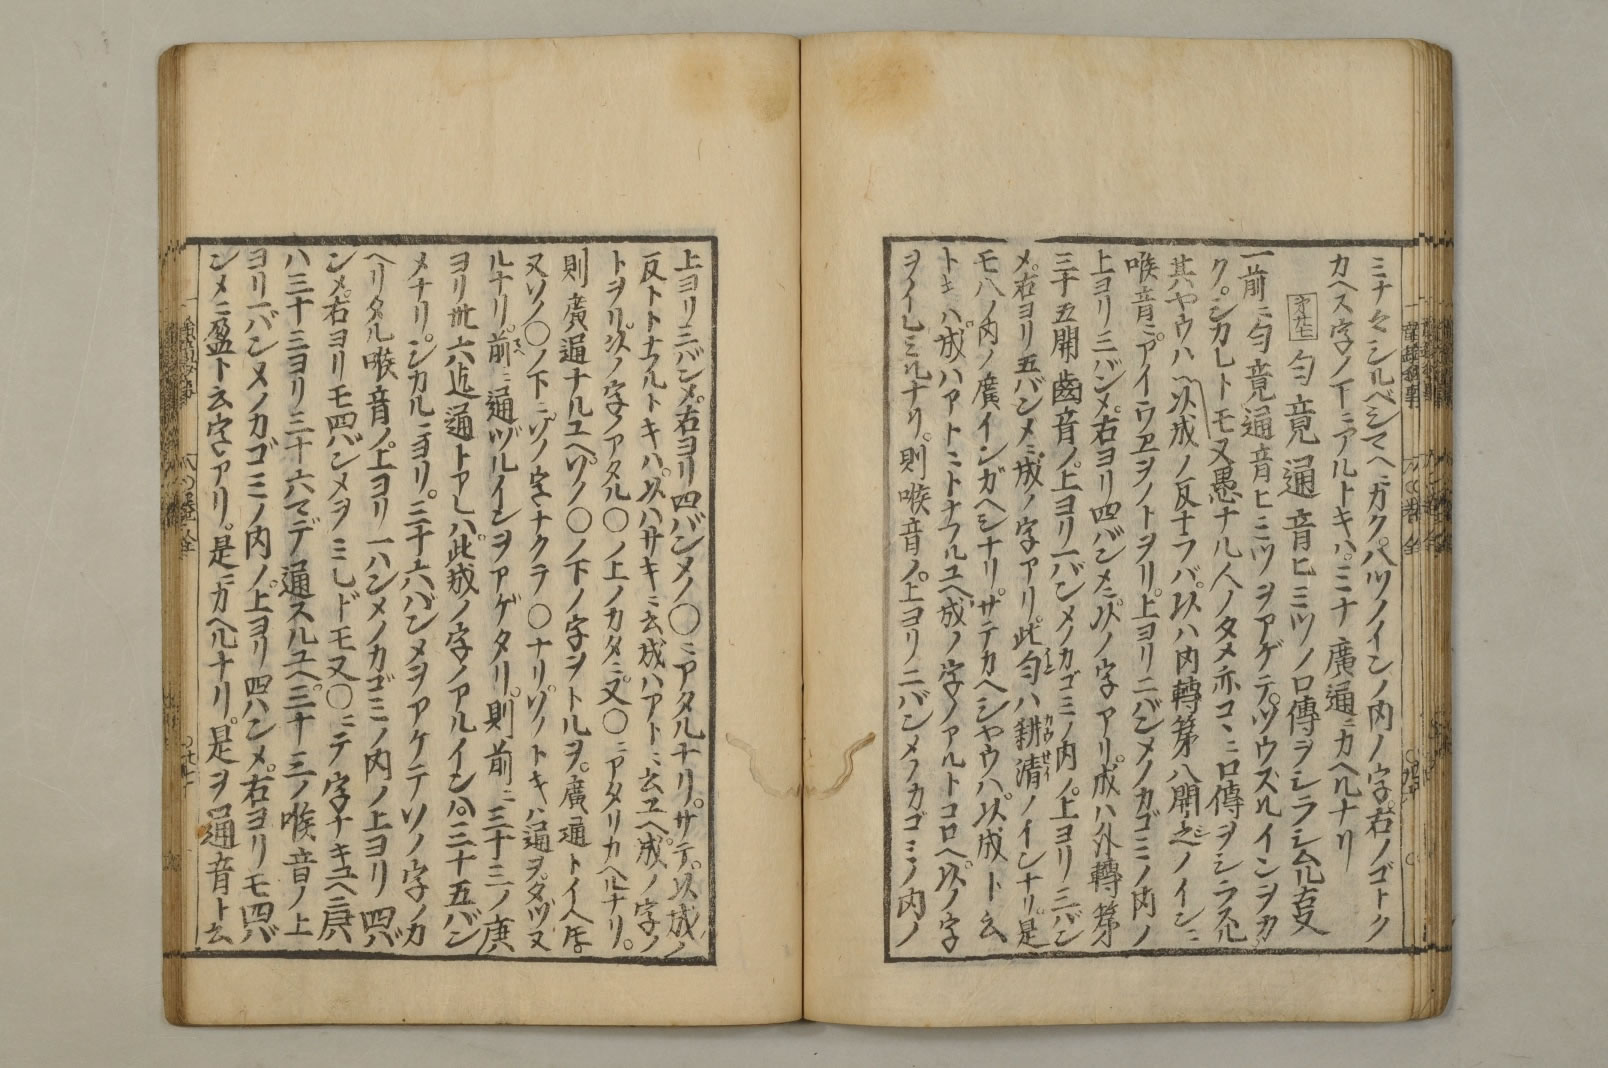 ミナ々シルベシマヘニガクハツノインノ内ノ字右ノゴトク
カヘス字ノ下ニアルトキハミナ廣通ニカヘルナリ
匀竟通音ヒミツノ口傳ヲシラシム
一前ニ匀竟通音ヒミツヲアゲテツウズルインヲカ
クシカレトモ又愚ナル人ノタメ亦コヽニ口傳ヲシラス
其ヤウハ以成ノ反ナラバ以ハ内轉第八開之ノインニ
喉音ニアイウヱヲノトヲリ上ヨリ二バンメノカゴミノ内ノ
上ヨリ三バンメ右ヨリ四バンメニ以ノ字アリ成ハ外轉第
三十五開齒音ノ上ヨリ一バンメノカゴミノ内ノ上ヨリ二バン
メ右ヨリ五バンメニ成ノ字アリ此匀ハ耕清ノインナリ是
モ八ノ内ノ廣インガヘシナリサテカヘシヤウハ以成ト云
トキハ成ハアトニトナフルユヘ成ノ字ノアルトコロヘ以ノ字
ヲイレミルナリ則喉音ノ上ヨリ二バンメノカゴミノ内ノ
上ヨリ三バンメ右ヨリ四バンメノ〇ニアタルナリサテ以成ノ
反トトナフルトキハ以ハサキニ云成ハアトニ云ユヘ成ノ字ノ
トヲリ以ノ字ノアタル〇ノ上ノカタニ又〇ニアタリカヘルナリ
則廣通ナルユヘソノ〇ノ下ノ字ヲトルヲ廣通トイヘ
又ソノ〇ノ下ニソノ字ナクテ〇ナリソノトキハ通ヲタヅヌ
ルナリ前ニ通ヅルインヲアゲタリ則前ニ三十三ノ庚
ヨリ卅六迄通トアレハ此成ノ字ノアルインハ三十五バン
メナリシカルニヨリ三十六バンメヲアケテソノ字ノカ
ヘリタル喉音ノ上ヨリ一ハンメノカゴミノ内ノ上ヨリ四バ
ンメ右ヨリモ四バンメヲミレドモ又〇ニテ字ナキユヘニ庚
ハ三十三ヨリ三十六マデ通スルユヘ三十三ノ喉音ノ上
ヨリ一バンメノカゴミノ内ノ上ヨリ四ハンメ右ヨリモ四バ
ンメニ盈ト云字アリ是ニカヘルナリ是ヲ通音ト云